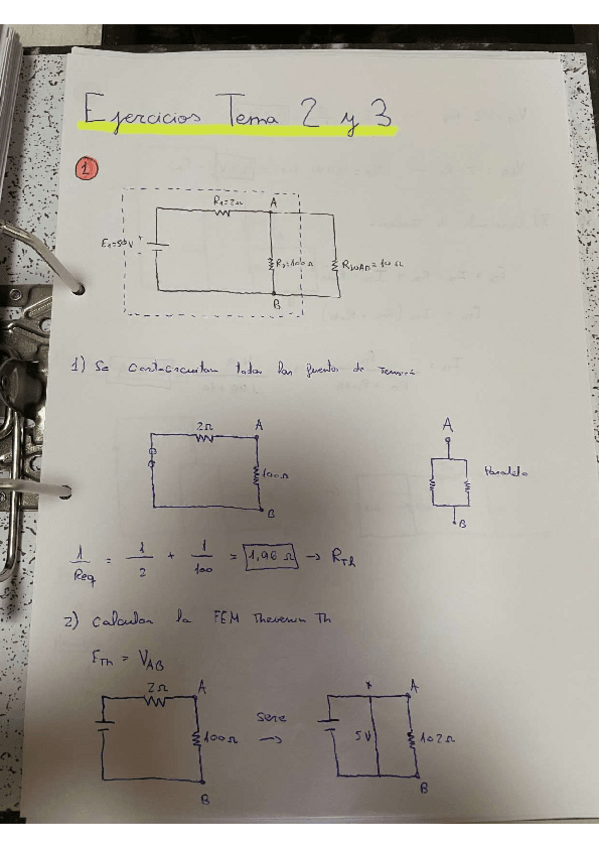 Ejercicios Tema 2 y 3
1
R₁=2Ω A
E₁=50V + -
R₂=100Ω
B
1) Se cortocircuitan todas las fuentes de tensión
2Ω A
100Ω
B
A
Paralelo
B
1/Req = 1/2 + 1/100 = 1,96 Ω → RTh
2) Calcular la FEM Thevenin Th
ETh = VAB
2Ω A
100Ω
B
serie →
A
5V
102Ω
B